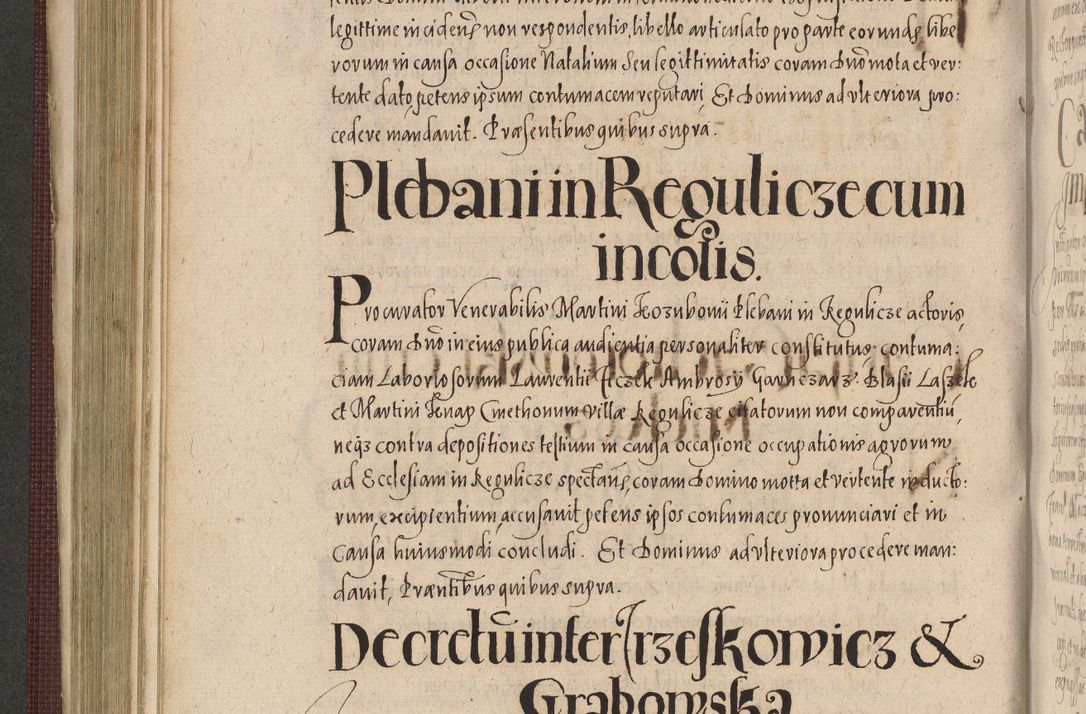 legittime incidenter non respondentis, libello articulato pro parte eorundem libe
rorum in causa occasione Natalium seu legittimitatis coram Dno mota et ver:
tente dato, petens ipsum contumacem reputari, Et Dominus ad ulteriora pro:
cedere mandavit. Præsentibus quibus supra.
Plebani in Regulicze cum
incolis.
Procurator Venerabilis Martini Kozubowii Plebani in Regulicze actoris,
coram Dno in eius publica audientia personaliter constitutus contuma:
ciam Laboriosorum Laurentii Ficzek Ambrosÿ Garnczarz Blasii Laszele
et Martini Knap Cmethonum villæ Regulicze citatorum non comparentiu,
neqz contra depositiones testium in causa occasione occupationis agrorum
ad Ecclesiam in Regulicze spectan, coram Domino motta et vertente inducto:
rum, excipientium, accusavit petens ipsos contumaces pronunciari et in
causa huiusmodi concludi. Et Dominus ad ulteriora procedere man:
davit, Præntibus quibus supra.
Decretū inter Irzeſkowicz &
Grabowska